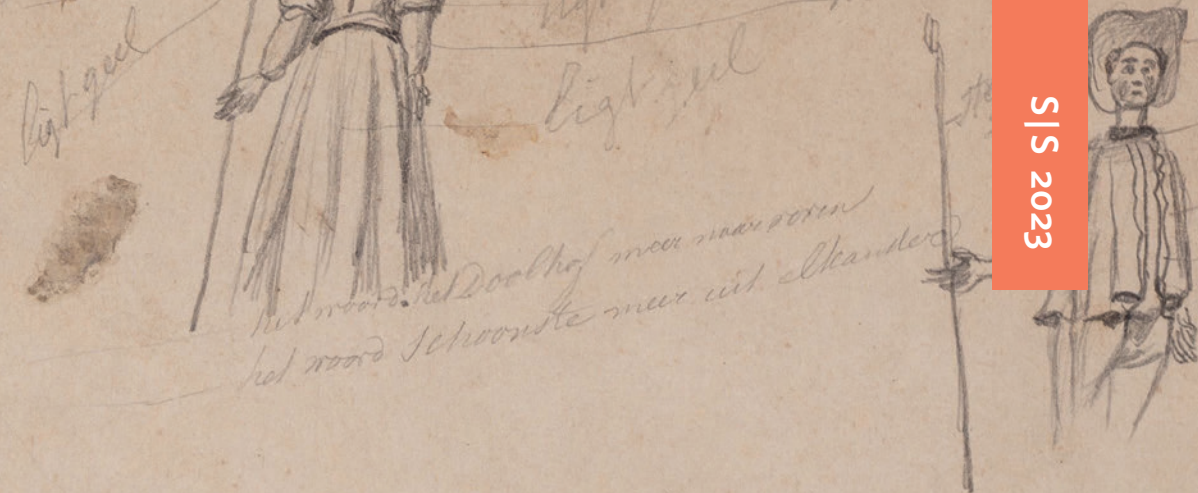 ligt geel
ligt geel
het woord het Doolhof meer naar voren
het woord Schoonste meer uit elkander
S|S 2023